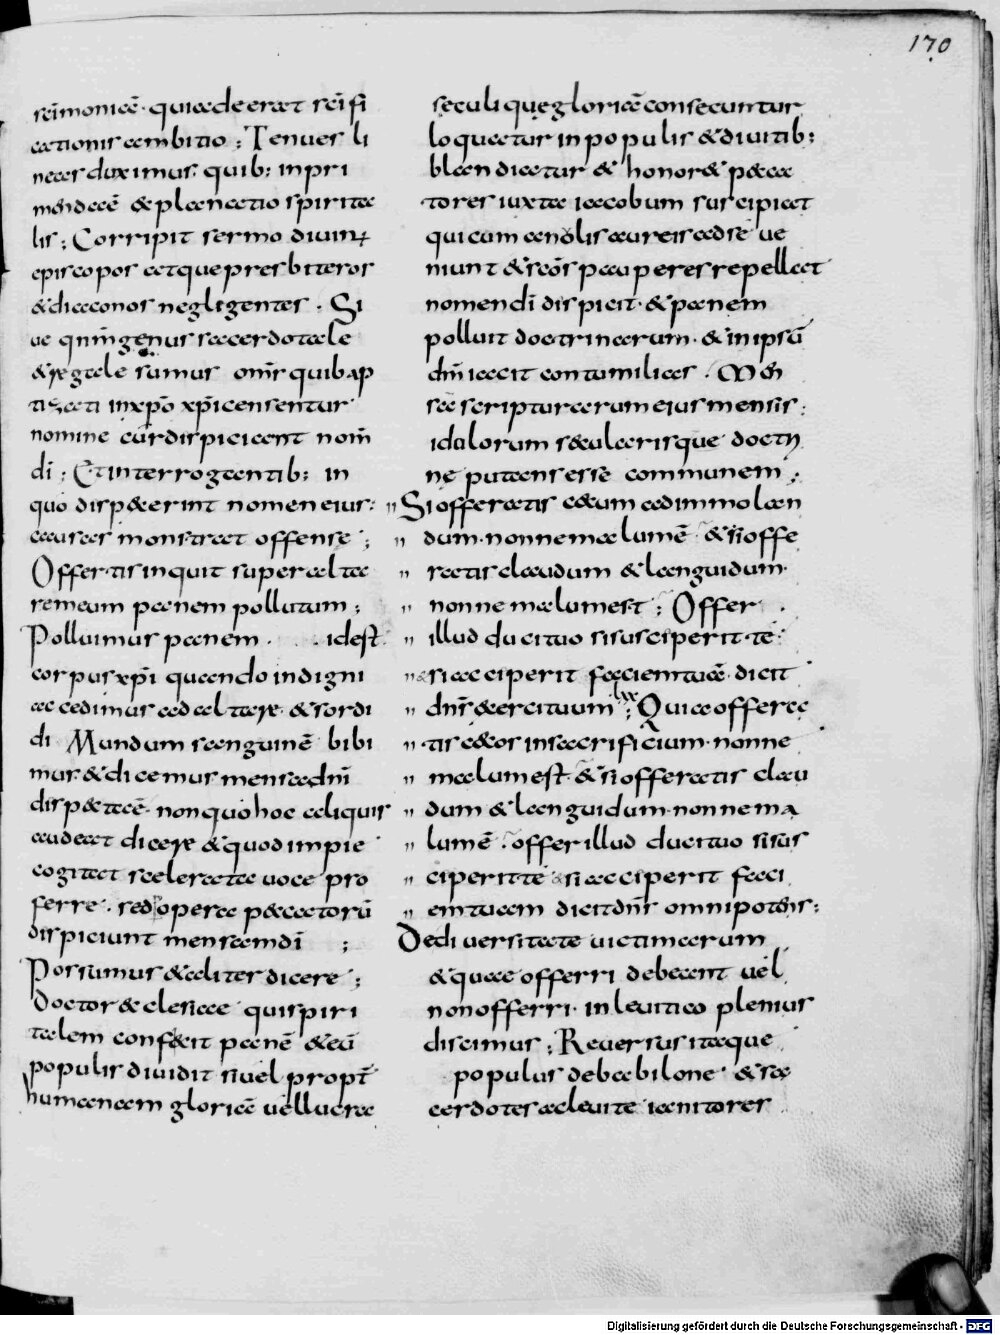 170
scīmoniā· quia deerat scīfi
cationis ambitio; Tenues li
neas duximus· quib: inpri
mendacē &planatio spirita
lis; Corripit sermo divinꝰ
episcopos atque presbiteros
&diaconos neglegentes. Si
ve qnm genus sacerdotale
& regale sumus omnis quibap
tizati inxpō xpi censentur
nomine cur dispiciant nom̄
dī; Et interrogantib: in
quo dispexerint nomen eius:
causas monstrat offense;
Offertis inquit super alta
re meum panem pollutum;
Polluimus panem idest
corpus xpī quando indigni
accedimus ad altare & sordi
di Mundum sanguinē bibi
mus & dicemus mensa dnī
dispecta ē non quo hoc aliquis
audeat dicere & quod impie
cogitat scelerata voce pro
ferre. sed opera peccatorū
dispiciunt mensam dī;
Possumus & aliter dicere;
Doctor ecclesiae qui spiri
talem conficit panē & eū
populis dividit si vel propt̄
humanam gloriā vel lucra
seculi que gloriā consecuntur
loquatur in populis & divitib:
blandiatur & honor& pecca
tores iuxta iacobum suscipiat
qui cum anolis aureis ad se ve
niunt & scōs pauperes repellat
nomen dī dispicit· & panem
polluit doctrinarum· & in ipsū
dnī iacit contumilias. Men
sā scripturarum eius mensis
idolorum seculariisque doctri
ne putans esse communem;
Si offeratis caecum ad immolan
dum· nonne malum ē & si offe
ratis claudum & languidum·
nonne malum est; Offer
illud duci tuo si susciperit te·
& si acciperit faciem tuā· dicit
dns exercituum; lxx Quia offera
tis caecos in sacrificium· nonne
malum est· & si offeratis clau
dum & languidum· nonne ma
lum ē offer illud duci tuo si sus
ciperit te & si acciperit faci
em tuam dicit dns omnipotens:
De diversitate victimarum
& quae offerri debeant vel
non offerri· in levitico plenius
discimus; Reversus itaque
populus de babilone & sa
cerdotes ac levite ianitores
Digitalisierung gefördert durch die Deutsche Forschungsgemeinschaft - DFG